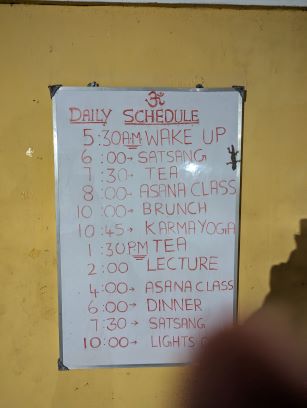 ॐ
DAILY SCHEDULE
5:30AM WAKE UP
6:00→ SATSANG
7:30→ TEA
8:00→ ASANA CLASS
10:00→ BRUNCH
10:45→ KARMA YOGA
1:30PM TEA
2:00 LECTURE
4:00→ ASANA CLASS
6:00→ DINNER
7:30→ SATSANG
10:00→ LIGHTS